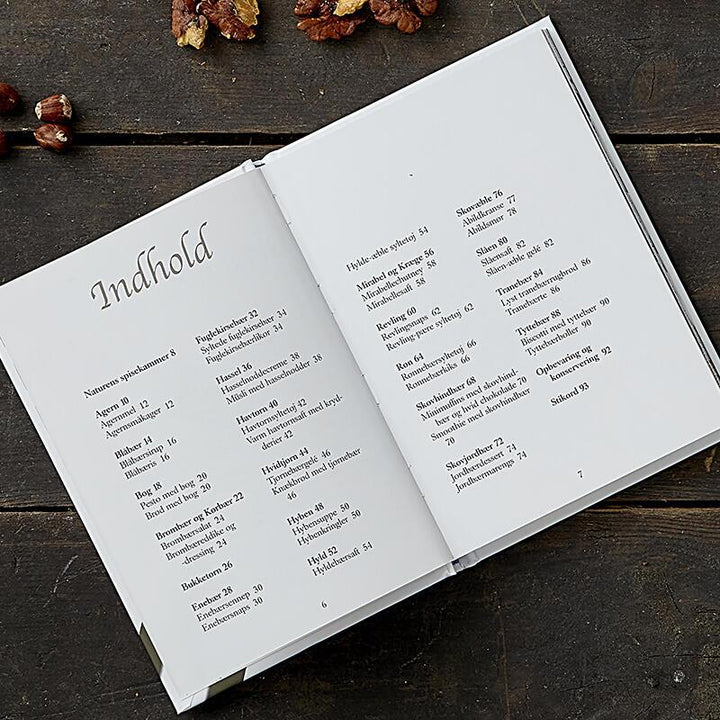 Indhold
Naturens spisekammer 8
Agern 10
Agernmel 12
Agernsmåkager 12
Blåbær 14
Blåbærsirup 16
Blåbæris 16
Bog 18
Pesto med bog 20
Brød med bog 20
Brombær og Korbær 22
Brombærsalat 24
Brombæreddike og
-dressing 24
Bukketorn 26
Enebær 28
Enebærsennep 30
Enebærsnaps 30
Fuglekirsebær 32
Syltede fuglekirsebær 34
Fuglekirsebærlikør 34
Hassel 36
Hasselnøddecreme 38
Müsli med hasselnødder 38
Havtorn 40
Havtornsyltetøj 42
Varm havtornsaft med kryd-
derier 42
Hvidtjørn 44
Tjørnebærgelé 46
Knækbrød med tjørnebær
46
Hyben 48
Hybensuppe 50
Hybenkringler 50
Hyld 52
Hyldebærsaft 54
6
Hylde-æble syltetøj 54
Mirabel og Kræge 56
Mirabellechutney 58
Mirabellesaft 58
Revling 60
Revlingsnaps 62
Revling-pære syltetøj 62
Røn 64
Rønnebærsyltetøj 66
Rønnebærkiks 66
Skovhindbær 68
Minimuffins med skovhind-
bær og hvid chokolade 70
Smoothie med skovhindbær
70
Skovjordbær 72
Jordbærdessert 74
Jordbærmarengs 74
Skovæble 76
Æblekranse 77
Æblesmør 78
Slåen 80
Slåensaft 82
Slåen-æble gelé 82
Tranebær 84
Lyst tranebærrugbrød 86
Tranetærte 86
Tyttebær 88
Biscotti med tyttebær 90
Tyttebærboller 90
Opbevaring og
konservering 92
Stikord 93
7